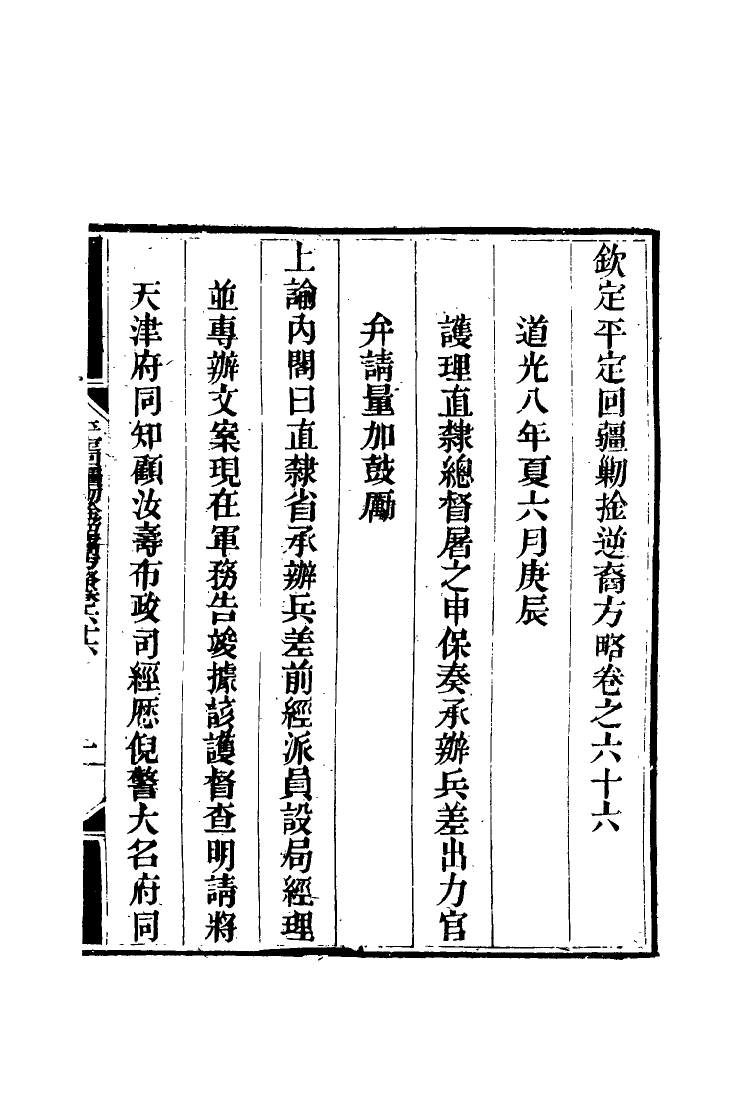 欽定平定回疆剿捦逆裔方略卷之六十六
道光八年夏六月庚辰
護理直隸總督屠之申保奏承辦兵差出力官
弁請量加鼓勵
上諭內閣曰直隸省承辦兵差前經派員設局經理
並專辦文案現在軍務告竣據該護督查明請將
天津府同知顧汝壽布政司經歷倪警大名府同